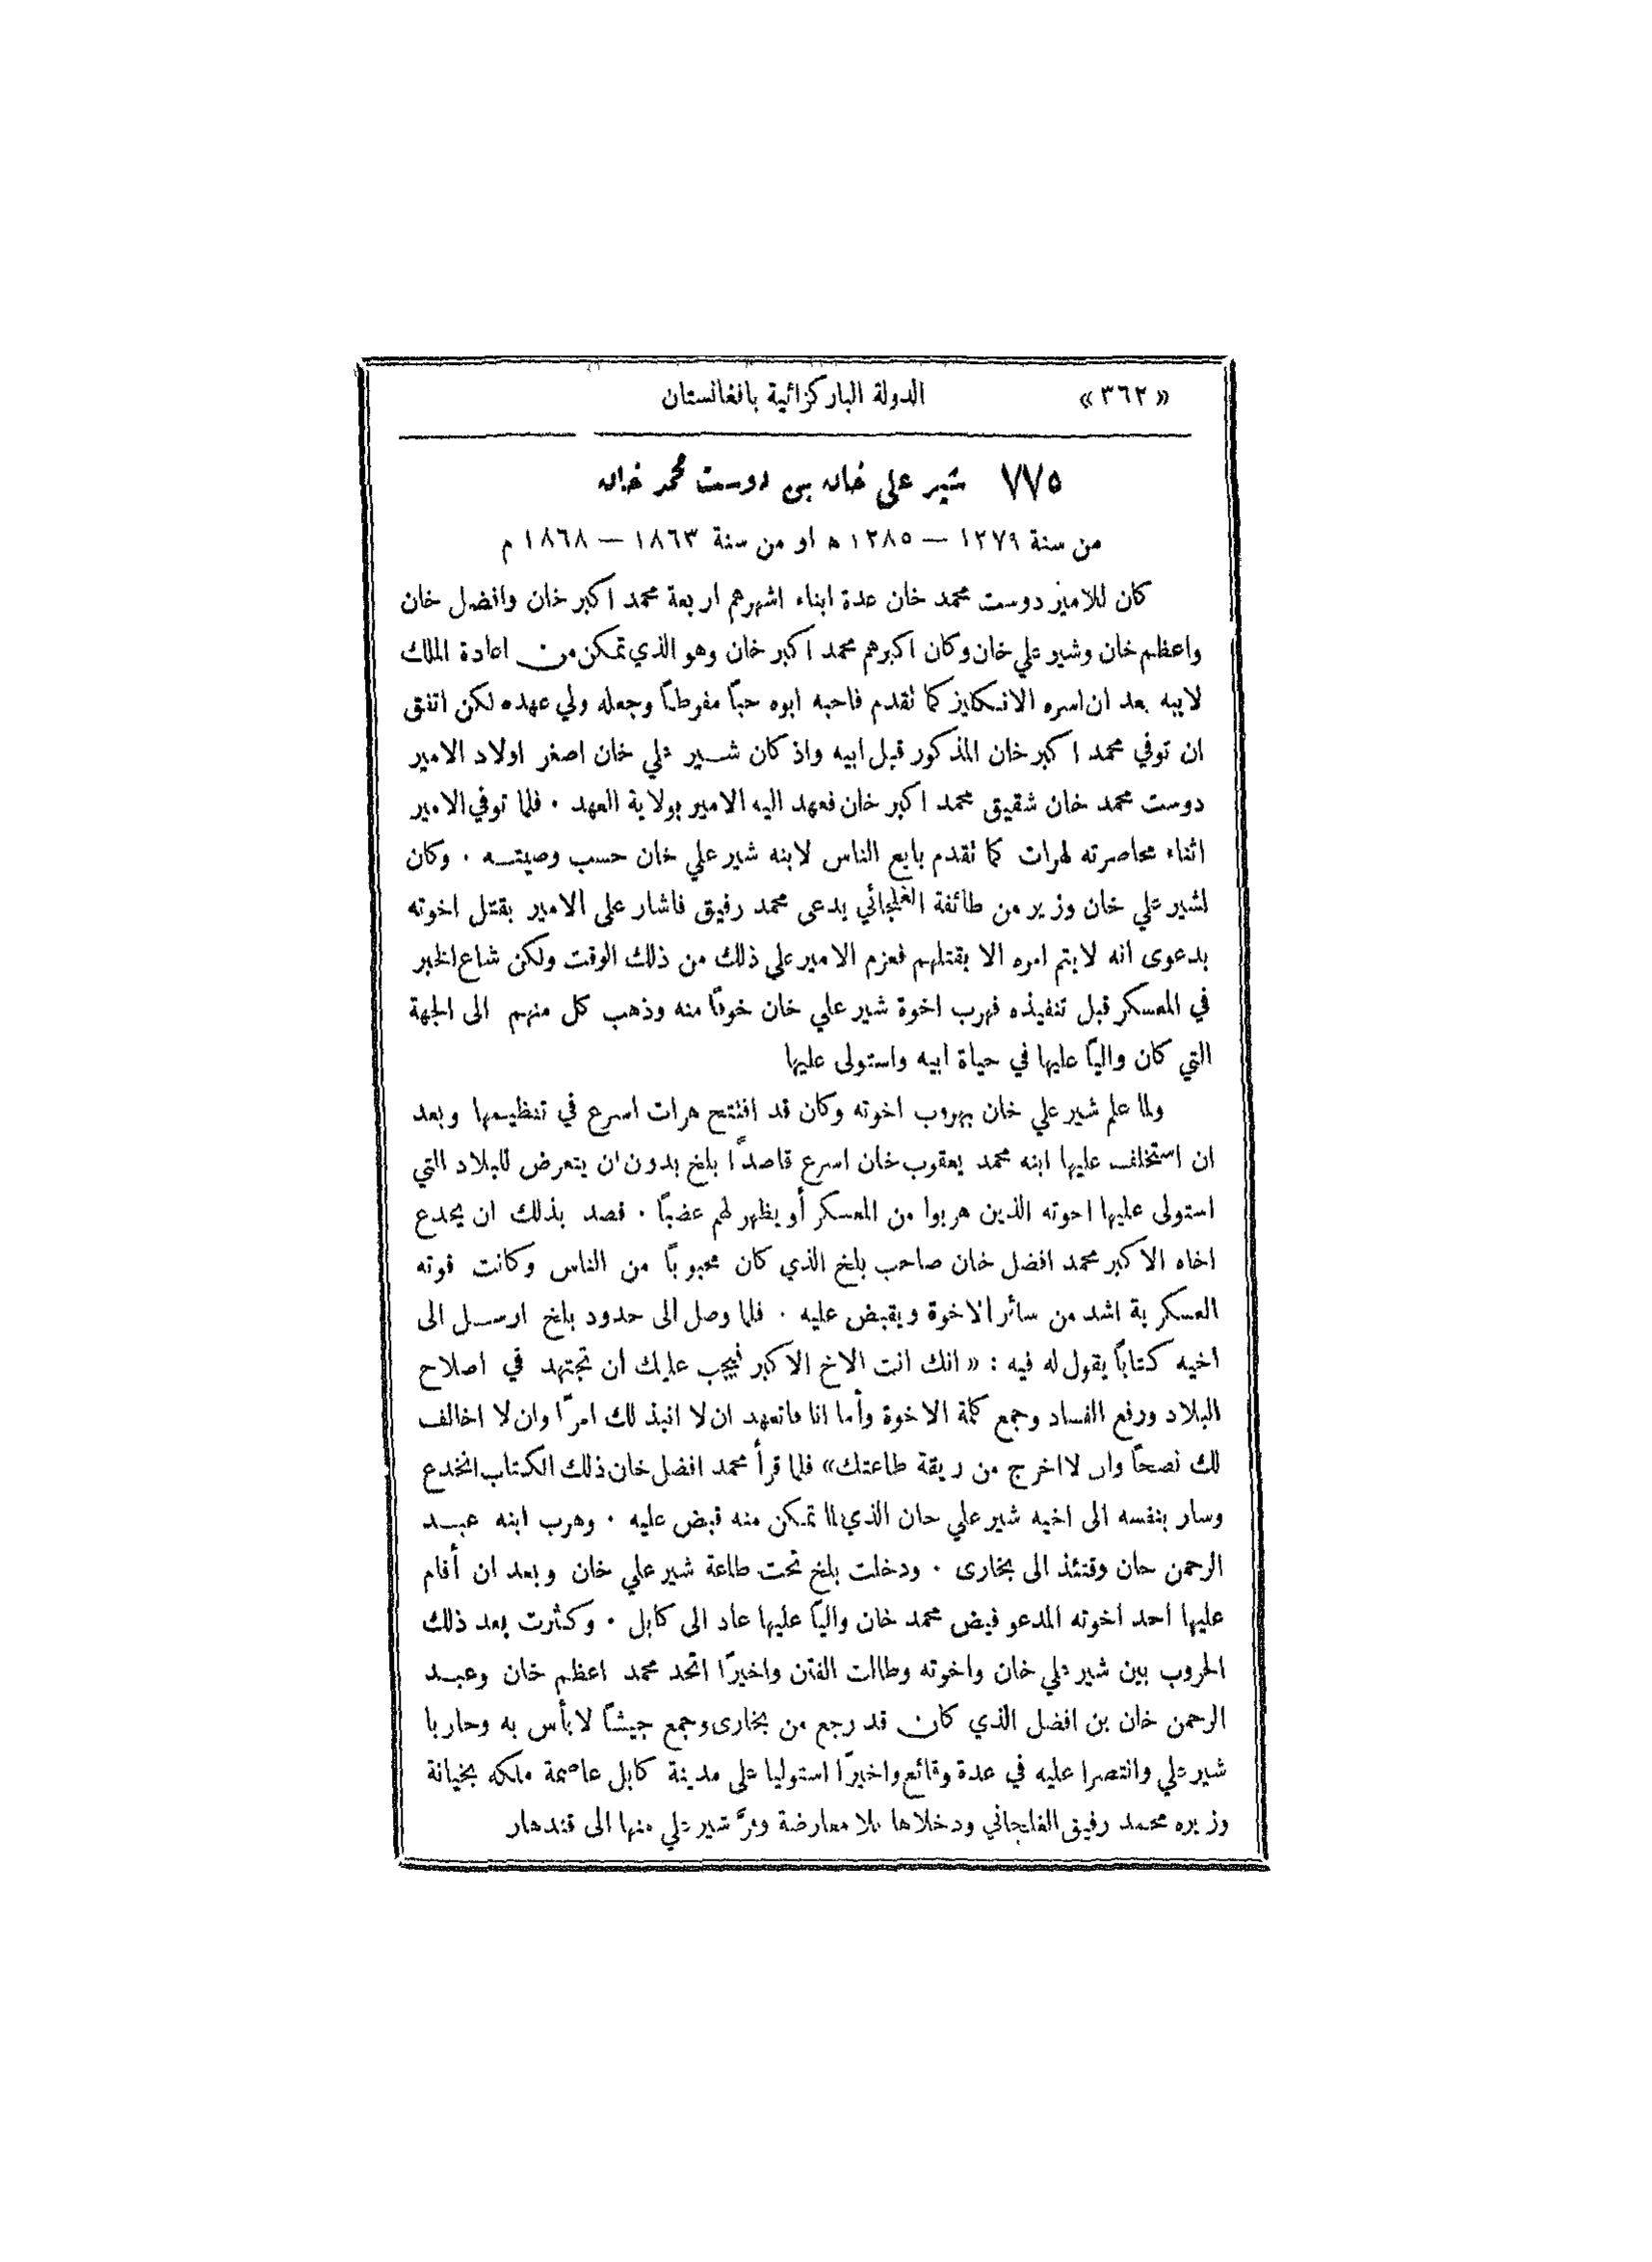 «٣٦٢» الدولة الباركزائية بافغانستان
٧٧٥ شير علي خان بن دوست محمد خان
من سنة ١٢٧٩ — ١٢٨٥ ه او من سنة ١٨٦٣ — ١٨٦٨ م
كان للامير دوست محمد خان عدة ابناء اشهرهم اربعة محمد اكبر خان وافضل خان
واعظم خان وشير علي خان وكان اكبرهم محمد اكبر خان وهو الذي تمكن من اعادة الملك
لابيه بعد ان اسره الانكليز كما تقدم فاحبه ابوه حبًا مفرطًا وجعله ولي عهده لكن اتفق
ان توفي محمد اكبر خان المذكور قبل ابيه واذ كان شير علي خان اصغر اولاد الامير
دوست محمد خان شقيق محمد اكبر خان فعهد اليه الامير بولاية العهد . فلما توفي الامير
اثناء محاصرته لهرات كما تقدم بايع الناس لابنه شير علي خان حسب وصيته . وكان
لشير علي خان وزير من طائفة الغلجائي يدعى محمد رفيق فاشار على الامير بقتل اخوته
بدعوى انه لا يتم امره الا بقتلهم فعزم الامير على ذلك من ذلك الوقت ولكن شاع الخبر
في المعسكر قبل تنفيذه فهرب اخوة شير علي خان خوفًا منه وذهب كل منهم الى الجهة
التي كان واليًا عليها في حياة ابيه واستولى عليها
ولما علم شير علي خان بهروب اخوته وكان قد افتتح هرات اسرع في تنظيمها وبعد
ان استخلف عليها ابنه محمد يعقوب خان اسرع قاصدًا بلخ بدون ان يتعرض للبلاد التي
استولى عليها اخوته الذين هربوا من المعسكر أو يظهر لهم غضبًا . قصد بذلك ان يخدع
اخاه الاكبر محمد افضل خان صاحب بلخ الذي كان محبوبًا من الناس وكانت قوته
العسكرية اشد من سائر الاخوة ويقبض عليه . فلما وصل الى حدود بلخ ارسل الى
اخيه كتابًا يقول له فيه : «انك انت الاخ الاكبر فيجب عليك ان تجتهد في اصلاح
البلاد ورفع الفساد وجمع كلمة الاخوة وأما انا فاتعهد ان لا انبذ لك امرًا وان لا اخالف
لك نصحًا وان لا اخرج من ربقة طاعتك» فلما قرأ محمد افضل خان ذلك الكتاب انخدع
وسار بنفسه الى اخيه شير علي خان الذي لما تمكن منه قبض عليه . وهرب ابنه عبد
الرحمن خان وقتئذ الى بخارى . ودخلت بلخ تحت طاعة شير علي خان وبعد ان أقام
عليها احد اخوته المدعو فيض محمد خان واليًا عليها عاد الى كابل . وكثرت بعد ذلك
الحروب بين شير علي خان واخوته وطالت الفتن واخيرًا اتحد محمد اعظم خان وعبد
الرحمن خان بن افضل الذي كان قد رجع من بخارى وجمع جيشًا لا بأس به وحاربا
شير علي وانتصرا عليه في عدة وقائع واخيرًا استوليا على مدينة كابل عاصمة ملكه بخيانة
وزيره محمد رفيق الغلجائي ودخلاها بلا معارضة وفرَّ شير علي منها الى قندهار